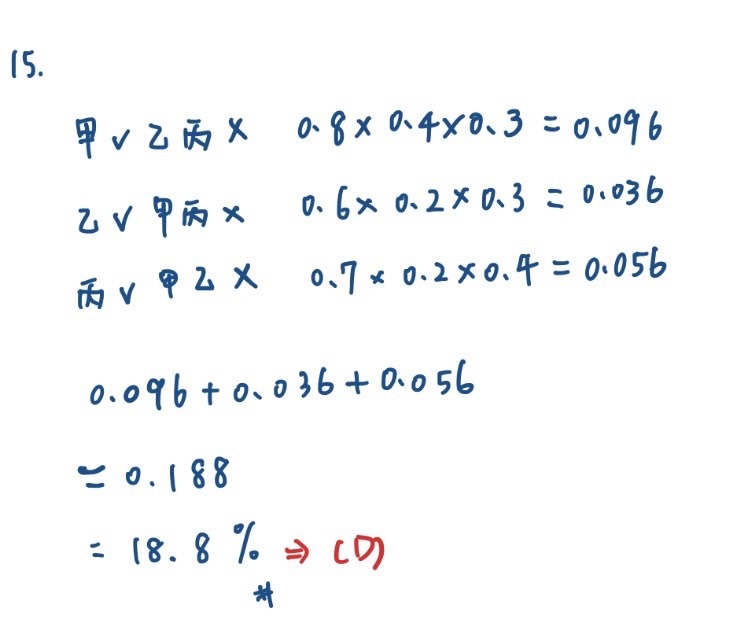 15.
甲✓乙丙× 0.8×0.4×0.3=0.096
乙✓甲丙× 0.6×0.2×0.3=0.036
丙✓甲乙× 0.7×0.2×0.4=0.056
0.096+0.036+0.056
=0.188
=18.8% ⇒ (D)
#